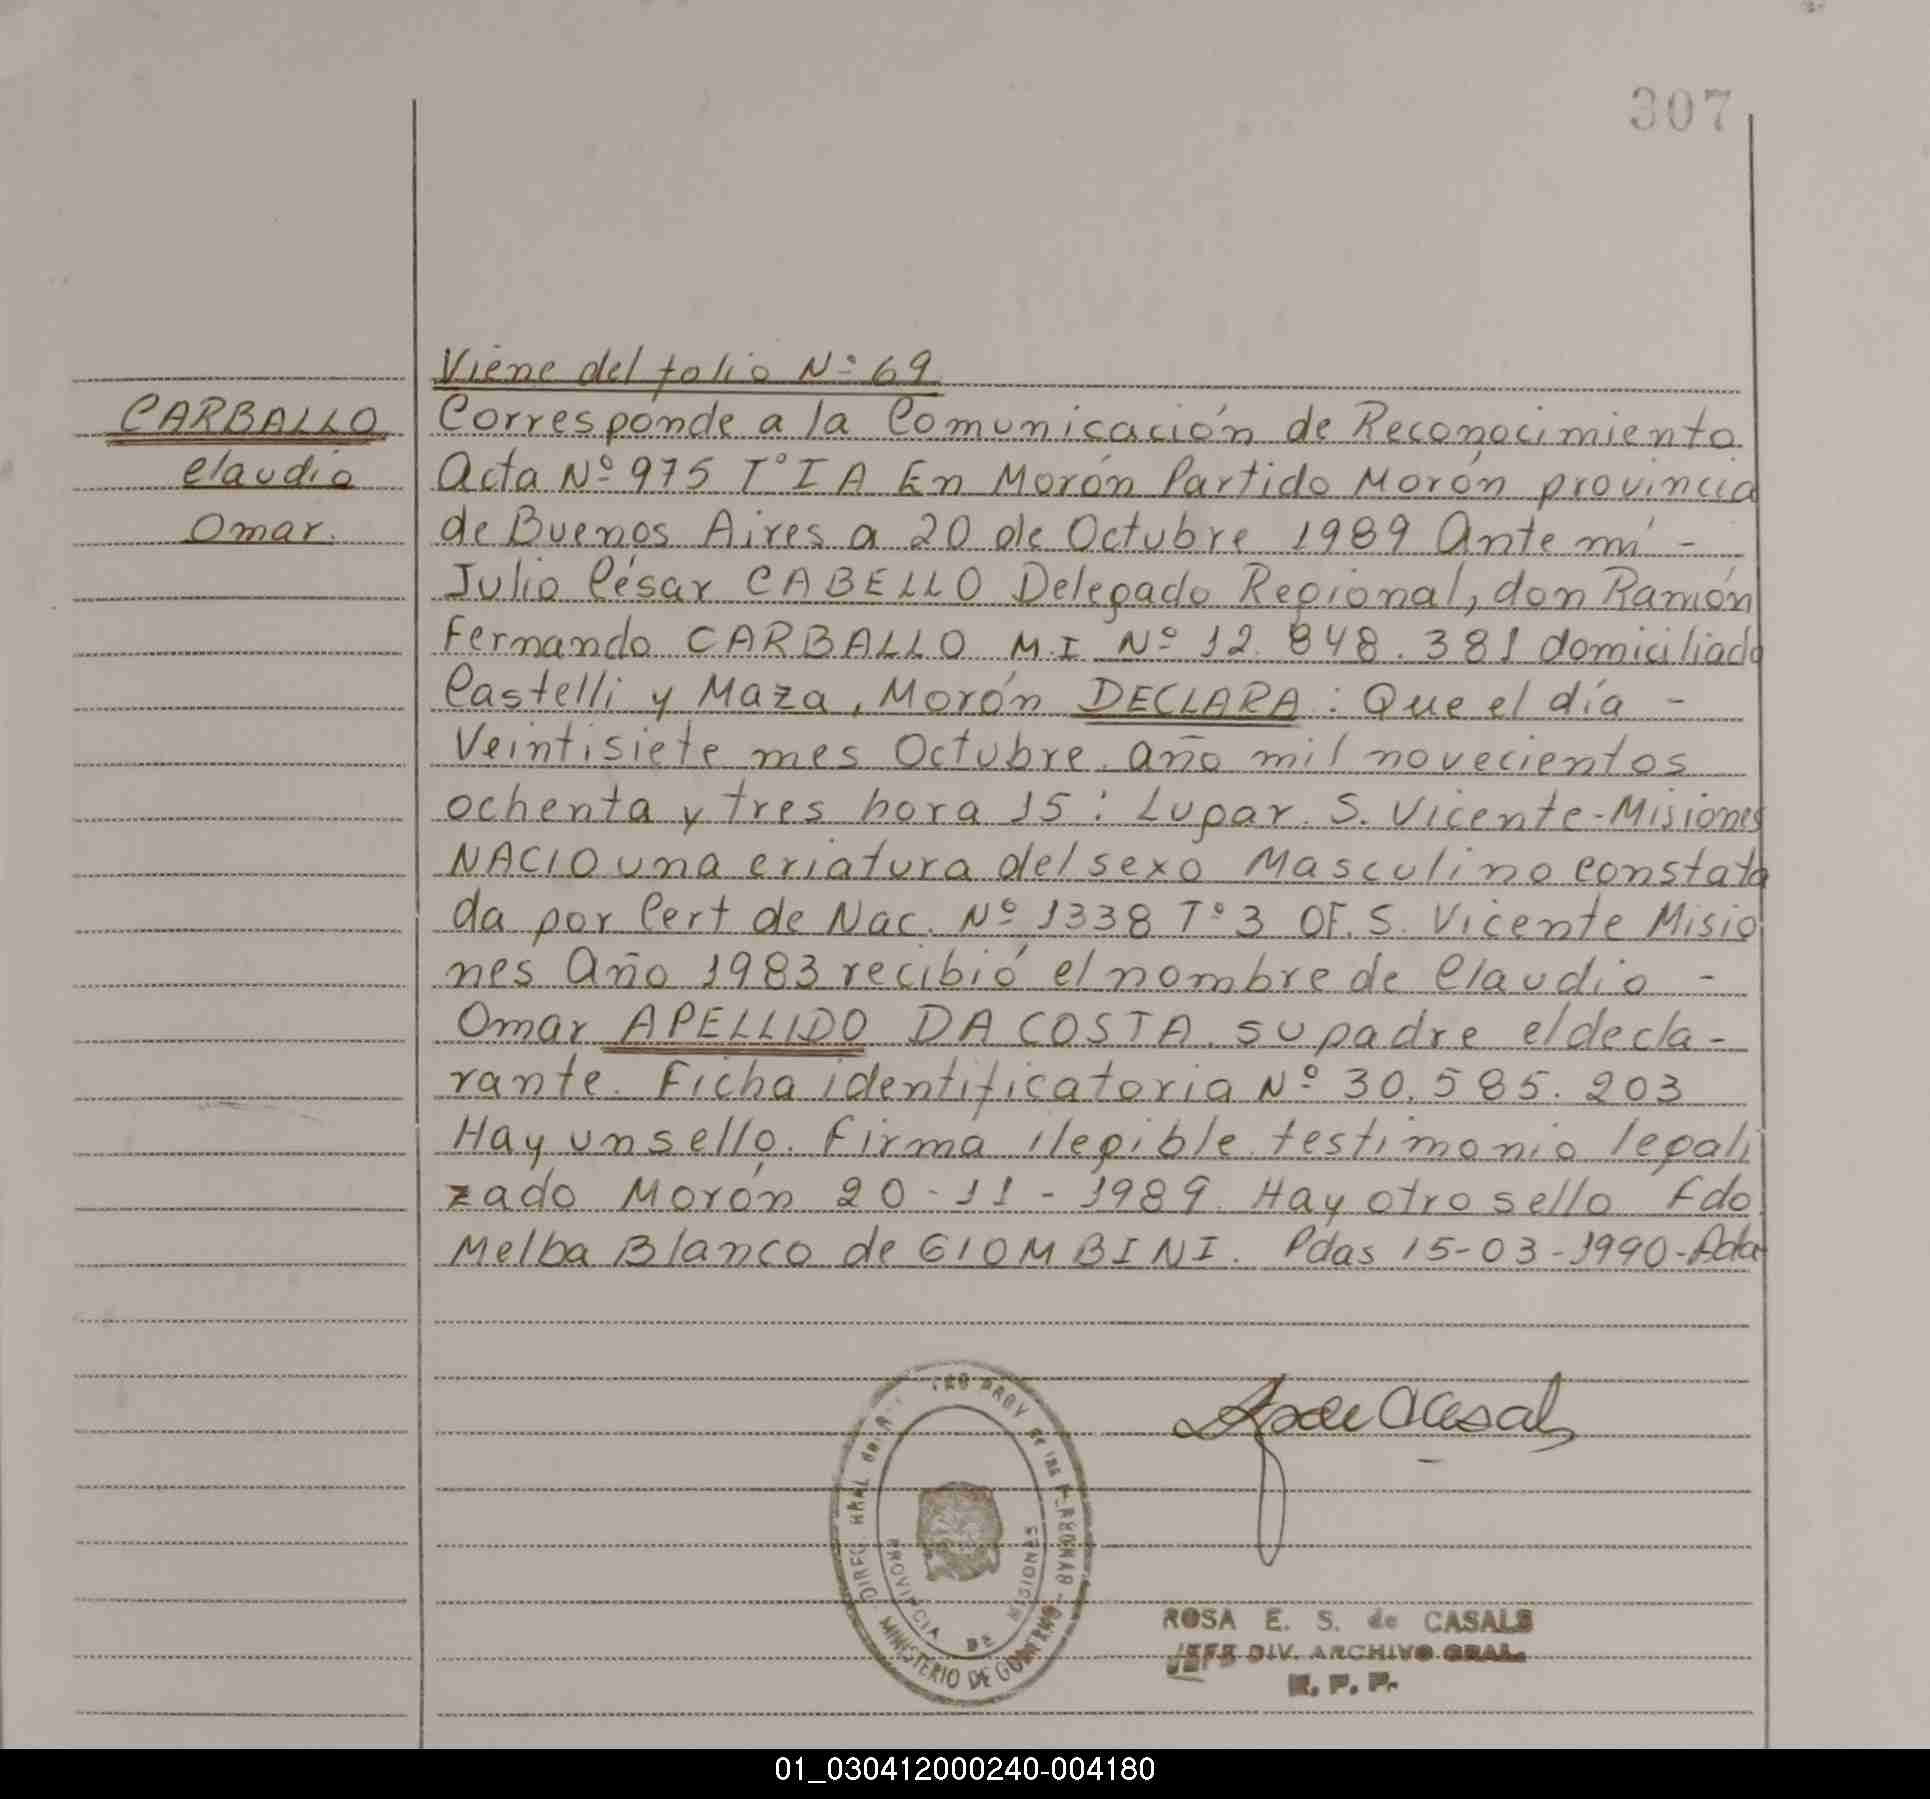 307
Viene del folio Nº 69
CARBALLO
Claudio
Omar.
Corresponde a la Comunicación de Reconocimiento
Acta Nº 975 Tº I A En Morón Partido Morón provincia
de Buenos Aires a 20 de Octubre 1989 Ante mí -
Julio César CABELLO Delegado Regional, don Ramón
Fernando CARBALLO M.I Nº 12.848.381 domiciliado
Castelli y Maza, Morón DECLARA: Que el día -
Veintisiete mes Octubre año mil novecientos
ochenta y tres hora 15: Lugar S. Vicente-Misiones
NACIO una criatura del sexo Masculino constata
da por Cert de Nac. Nº 1338 Tº 3 OF. S. Vicente Misio
nes Año 1983 recibió el nombre de Claudio -
Omar APELLIDO DA COSTA su padre el decla-
rante. Ficha identificatoria Nº 30.585.203
Hay un sello. Firma ilegible testimonio legali
zado Morón 20-11-1989. Hay otro sello Fdo
Melba Blanco de GIOMBINI. Pdas 15-03-1990-
PROVINCIA DE MISIONES
MINISTERIO DE GOBIERNO
ROSA E. S. de CASALS
JEFE DIV. ARCHIVO GRAL.
R. P. P.
01_030412000240-004180